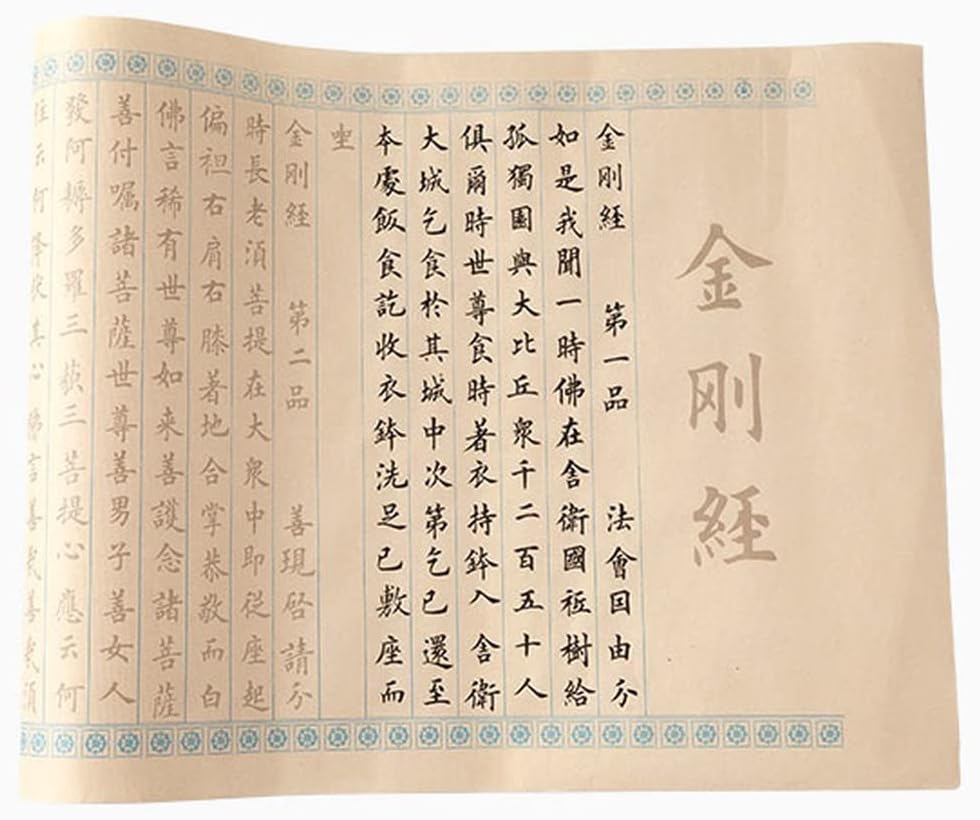 金剛經
金剛經 第一品 法會因由分
如是我聞一時佛在舍衛國祗樹給
孤獨園與大比丘眾千二百五十人
俱爾時世尊食時著衣持鉢入舍衛
大城乞食於其城中次第乞已還至
本處飯食訖收衣鉢洗足已敷座而
坐
金剛經 第二品 善現啓請分
時長老須菩提在大眾中即從座起
偏袒右肩右膝著地合掌恭敬而白
佛言稀有世尊如来善護念諸菩薩
善付囑諸菩薩世尊善男子善女人
發阿耨多羅三藐三菩提心應云何
住云何降伏其心佛言善哉善哉須